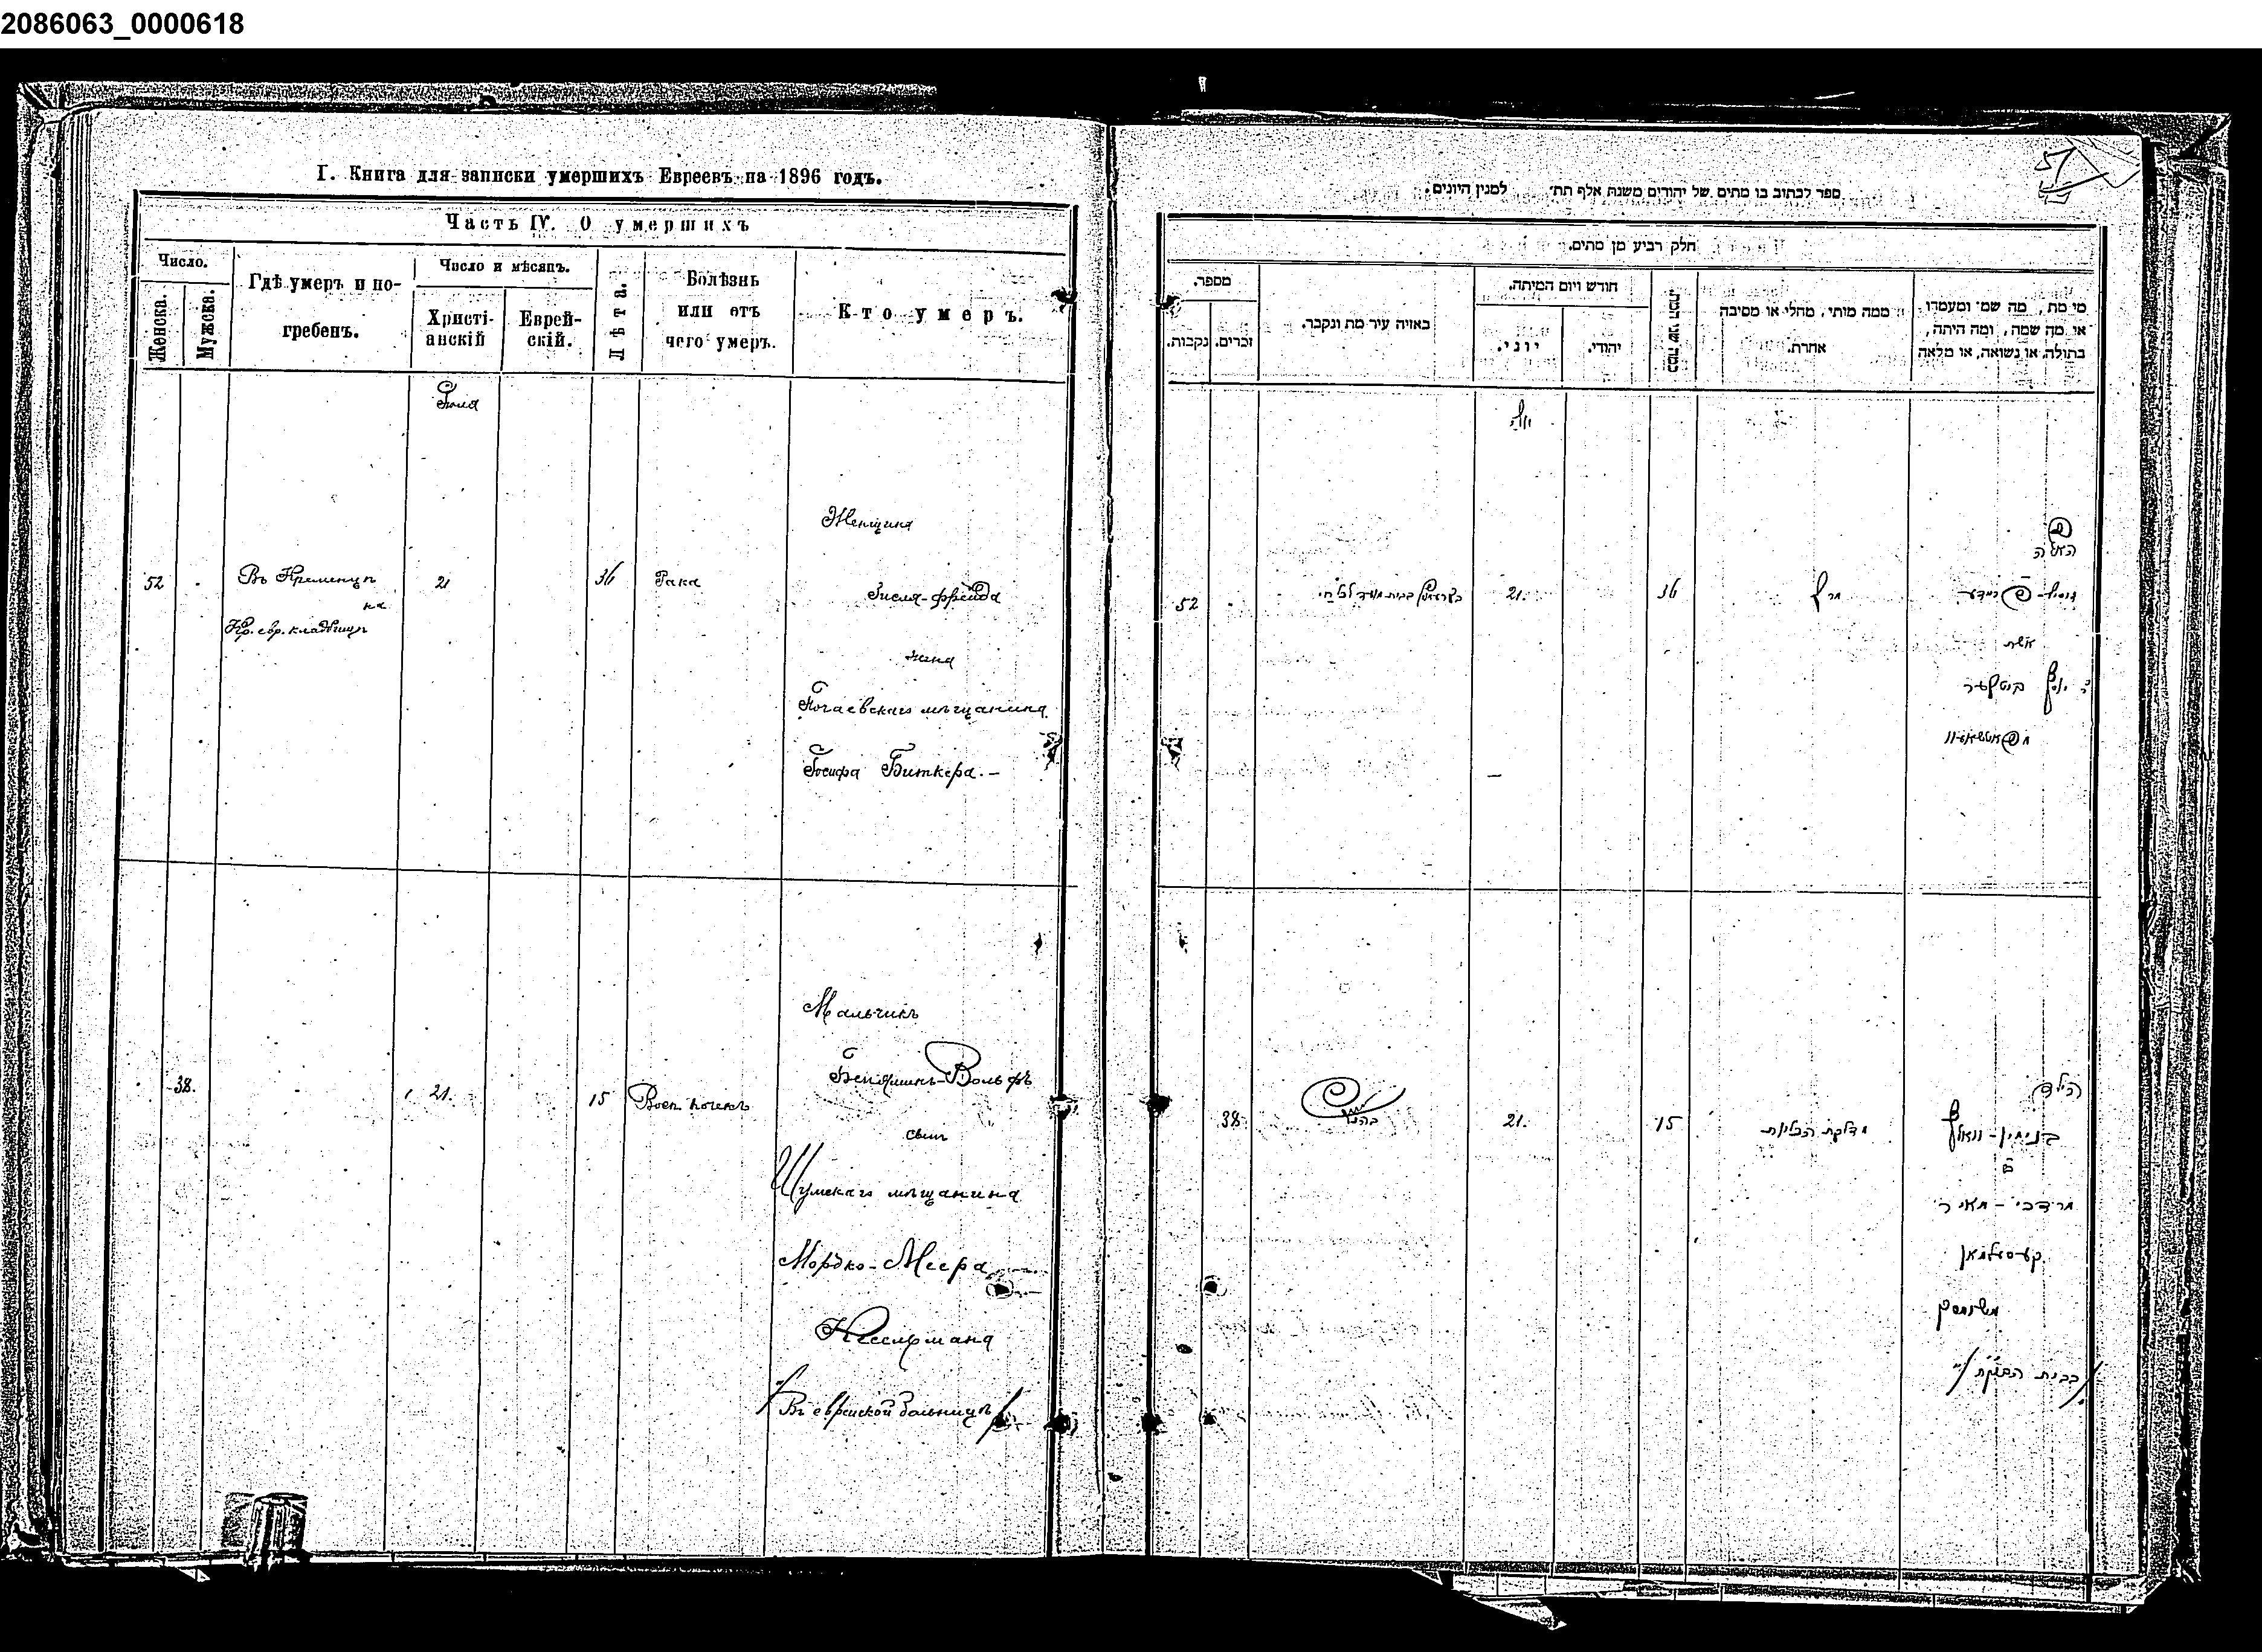 2086063_0000618
I. Книга для записки умершихъ Евреевъ на 1896 годъ.
Часть IV. О умершихъ
Число.
Женска.
Мужска.
Гдѣ умеръ и по-
гребенъ.
Число и мѣсяцъ.
Христі-
анскій
Еврей-
скій.
Лѣта.
Болѣзнь
или отъ
чего умеръ.
Кто умеръ.
Іюля
Женщина
52
Въ Кременцѣ
на
Кр. евр. кладбищѣ
21
36
Рака
Зисля-Фрейда
жена
Почаевскаго мѣщанина
Іосифа Биткера.-
38.
21.
15
Восп. почекъ
Мальчикъ
Беніяминъ-Вольфъ
сынъ
Шумскаго мѣщанина
Мордко-Меера
Кессельмана
/Въ еврейской больницѣ/
ספר לכתוב בו מתים של יהודים משנת אלף תת׳ למנין היונים.
57
חלק רביע מן מתים.
מספר.
נקבות.
זכרים.
באיזה עיר מת ונקבר.
חודש ויום המיתה.
יוני.
יהודי.
כמה שני המת.
ממה מותי, מחלי או מסיבה
אחרת.
מי מת, מה שמו ומעמדו
או מה שמה, ומה היתה,
בתולה או נשואה, או מלאה
יולי
האשה
52
21.
36
אשת
ר׳ יוסף ביטקער
38
21.
15
דלקת הכליות
הילד
בנימין-וואלף
ב׳
מרדכי-מאיר
קעסעלמאן
משומסק